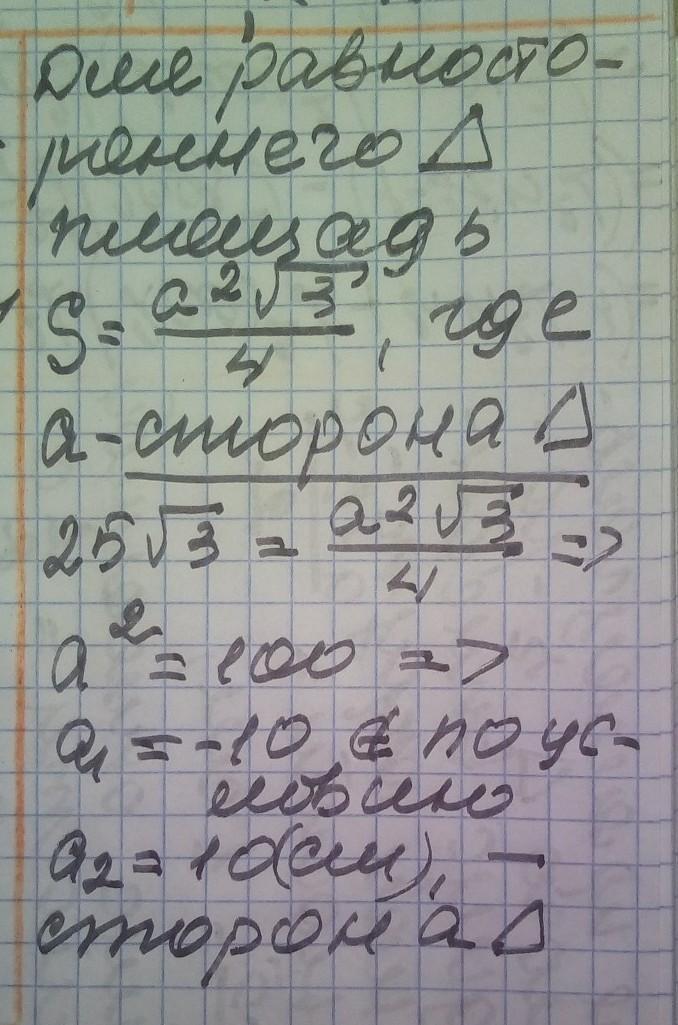 Для равносто-
роннего Δ
площадь
S = a²√3/4, где
a - сторона Δ
25√3 = a²√3/4 =>
a² = 100 =>
a₁ = -10 ∉ по ус-
ловию
a₂ = 10(см), —
сторона Δ